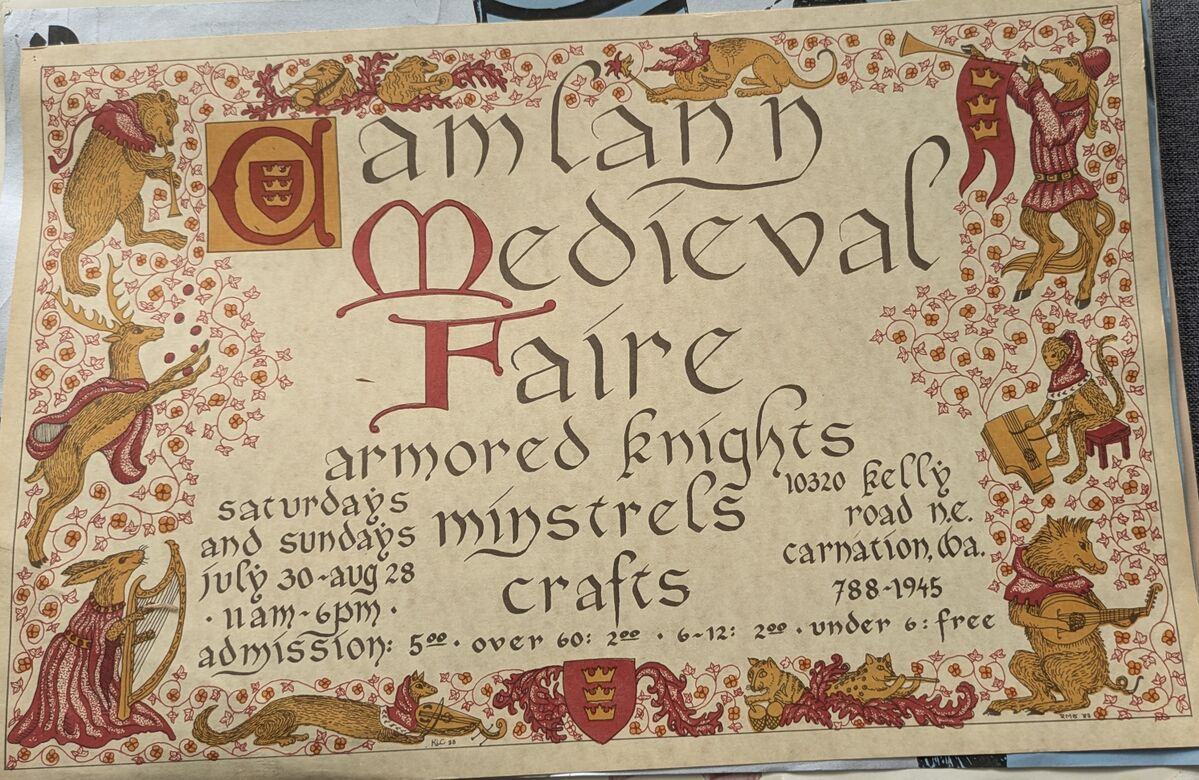 Camlann
Medieval
Faire
armored knights
minstrels
crafts
saturdays
and sundays
july 30-aug 28
· 11am-6pm ·
10320 kelly
road n.e.
carnation, wa.
788-1945
admission: 5.00 · over 60: 2.00 · 6-12: 2.00 · under 6: free
KLC 88
RMB 88